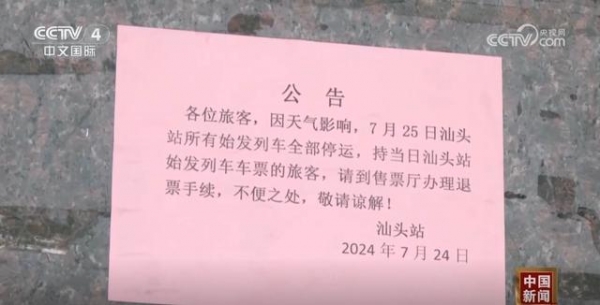 CCTV 4
中文国际
CCTV 央视网
com
公 告
各位旅客，因天气影响，7月25日汕头
站所有始发列车全部停运，持当日汕头站
始发列车车票的旅客，请到售票厅办理退
票手续，不便之处，敬请谅解！
汕头站
2024年7月24日
中国
新闻